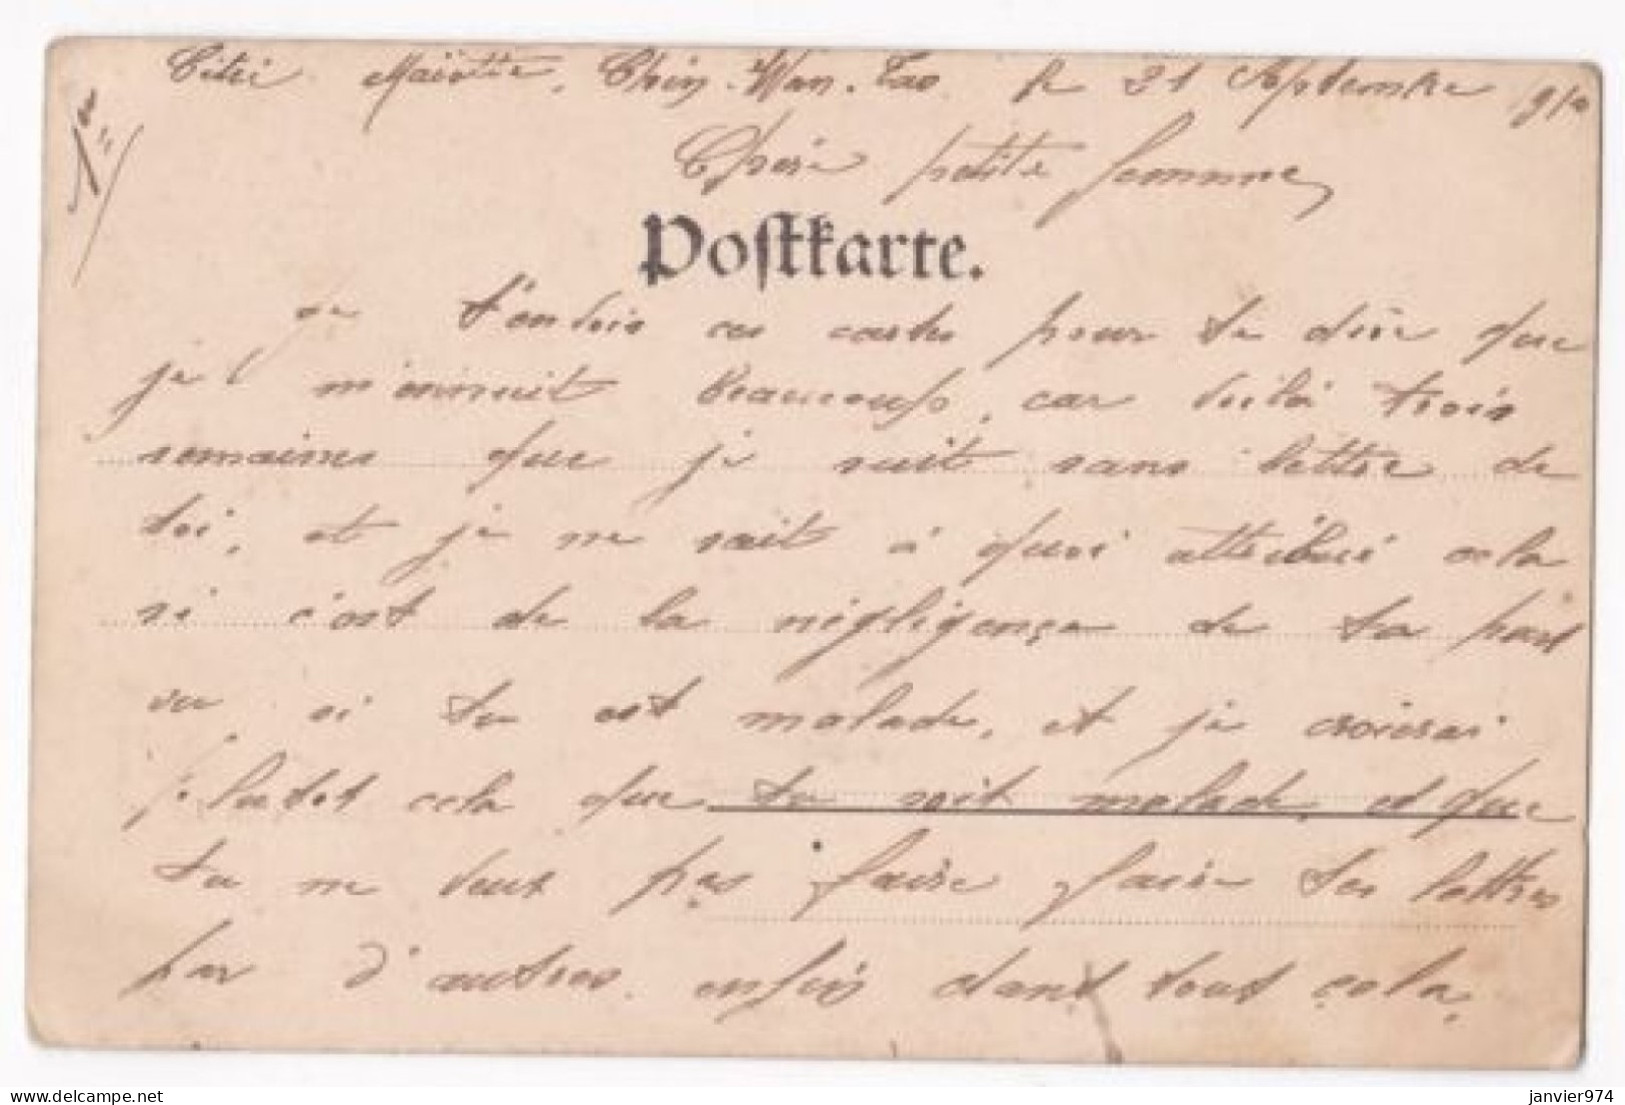 1°
Chin-Wan-Tao le 21 Septembre 1910
Chère petite femme,
Postkarte.
je t'envois ces cartes pour te dire que
je m'ennuit beaucoup, car voilà trois
semaines que je suit sans lettre de
toi, et je ne sait à quoi attribué cela
si c'est de la négligençe de ta part
ou si tu est malade, et je croirai
plutot cela que tu soit malade, et que
tu ne veux pas faire faire tes lettres
par d'autres. enfin dant tout çela,
janvier974
delcampe.net